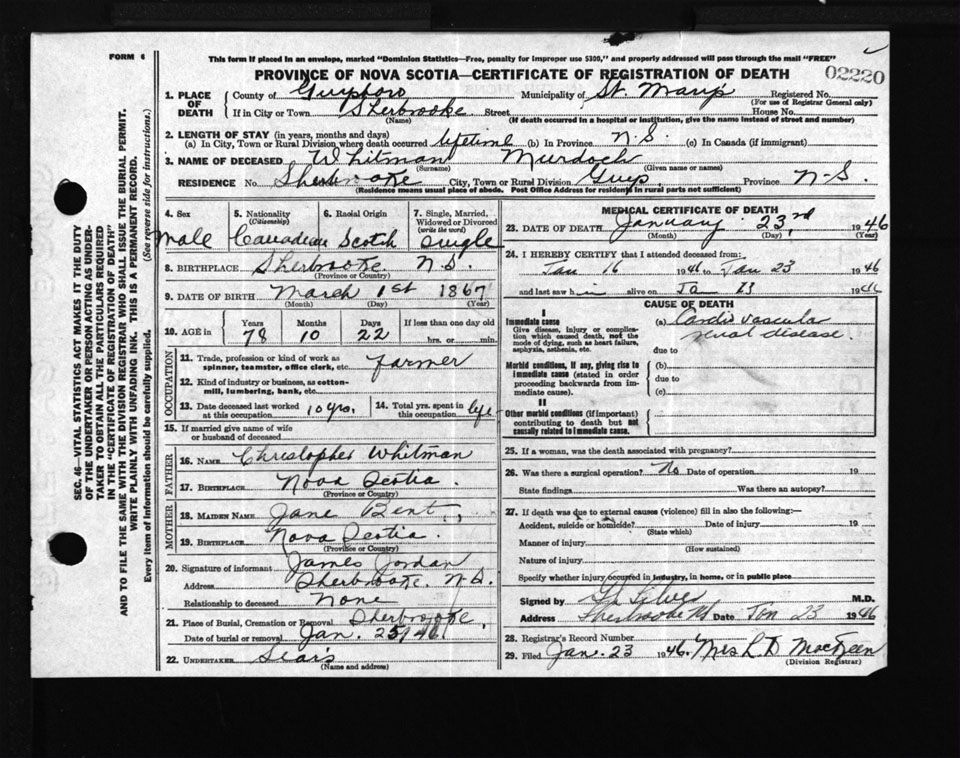 FORM 6
This form if placed in an envelope, marked "Dominion Statistics—Free, penalty for improper use $300," and properly addressed will pass through the mail "FREE"
PROVINCE OF NOVA SCOTIA—CERTIFICATE OF REGISTRATION OF DEATH
02220
SEC. 46—VITAL STATISTICS ACT MAKES IT THE DUTY
OF THE UNDERTAKER OR PERSON ACTING AS UNDER-
TAKER TO OBTAIN ALL THE PARTICULARS REQUIRED
IN THE "CERTIFICATE OF REGISTRATION OF DEATH"
AND TO FILE THE SAME WITH THE DIVISION REGISTRAR WHO SHALL ISSUE THE BURIAL PERMIT.
WRITE PLAINLY WITH UNFADING INK. THIS IS A PERMANENT RECORD.
Every item of Information should be carefully supplied. (See reverse side for instructions.)
1. PLACE OF DEATH
County of Guysboro Municipality of St. Marys Registered No.
(For use of Registrar General only)
If in City or Town Sherbrooke Street House No.
(Name) (If death occurred in a hospital or institution, give the name instead of street and number)
2. LENGTH OF STAY (in years, months and days)
(a) In City, Town or Rural Division where death occurred lifetime (b) In Province N.S. (c) In Canada (if immigrant)
3. NAME OF DECEASED Whitman Murdoch
(Surname) (Given name or names)
RESIDENCE No. Sherbrooke City, Town or Rural Division Guys. Province N.S.
(Residence means usual place of abode. Post Office Address for residents in rural parts not sufficient)
4. Sex Male
5. Nationality (Citizenship) Canadian
6. Racial Origin Scotch
7. Single, Married, Widowed or Divorced (write the word) Single
8. BIRTHPLACE Sherbrooke N.S.
(Province or Country)
9. DATE OF BIRTH March 1st 1867
(Month) (Day) (Year)
10. AGE in Years Months Days If less than one day
78 10 22 hrs. or min.
OCCUPATION
11. Trade, profession or kind of work as spinner, teamster, office clerk, etc. farmer
12. Kind of industry or business, as cotton-mill, lumbering, bank, etc.
13. Date deceased last worked at this occupation 10 yrs.
14. Total yrs. spent in this occupation life
15. If married give name of wife or husband of deceased
FATHER
16. NAME Christopher Whitman
17. BIRTHPLACE Nova Scotia.
(Province or Country)
MOTHER
18. MAIDEN NAME Jane Bent
19. BIRTHPLACE Nova Scotia.
(Province or Country)
20. Signature of informant James Jordan
Address Sherbrooke. N.S.
Relationship to deceased None
21. Place of Burial, Cremation or Removal Sherbrooke,
Date of burial or removal Jan. 25/46
22. UNDERTAKER Sears
(Name and address)
MEDICAL CERTIFICATE OF DEATH
23. DATE OF DEATH January 23rd 1946
(Month) (Day) (Year)
24. I HEREBY CERTIFY that I attended deceased from:
Jan 16 1946 to Jan 23 1946
and last saw him alive on Ja 23 1946
CAUSE OF DEATH
I
Immediate cause
Give disease, injury or complication which caused death, not the mode of dying, such as heart failure, asphyxia, asthenia, etc.
(a) Cardio vascular
renal disease.
due to
Morbid conditions, if any, giving rise to immediate cause (stated in order proceeding backwards from immediate cause).
(b)
due to
(c)
II
Other morbid conditions (if important) contributing to death but not causally related to Immediate cause.
25. If a woman, was the death associated with pregnancy?
26. Was there a surgical operation? No Date of operation 19
State findings Was there an autopsy?
27. If death was due to external causes (violence) fill in also the following:—
Accident, suicide or homicide? Date of injury 19
(State which)
Manner of injury
(How sustained)
Nature of injury
Specify whether injury occurred in industry, in home, or in public place
Signed by M.D.
Address Sherbrooke NS Date Jan 23 1946
28. Registrar's Record Number
29. Filed Jan. 23 1946. Mrs L D MacKeen
(Division Registrar)